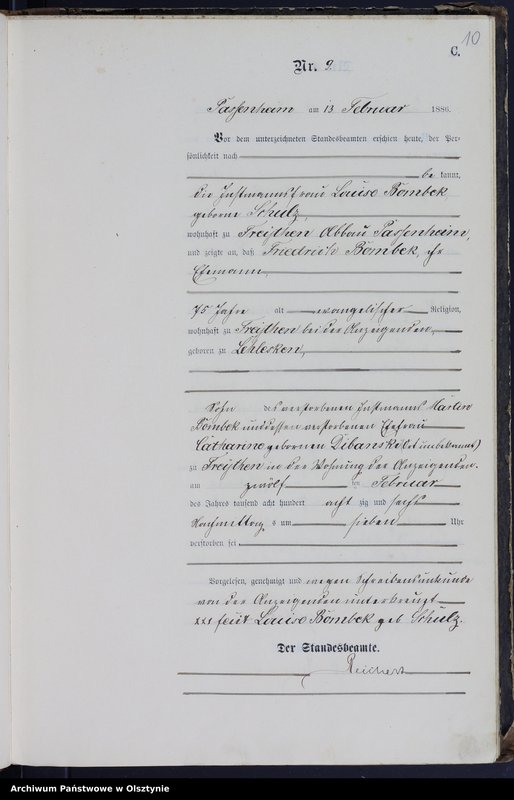 10
C.
Nr. 9
Passenheim am 13 Februar 1886.
Vor dem unterzeichneten Standesbeamten erschien heute, der Per-
sönlichkeit nach
be kannt,
die Instmannsfrau Louise Bombek
geborne Schulz,
wohnhaft zu Freythen Abbau Passenheim,
und zeigte an, daß Friedrich Bombek, ihr
Ehemann,
75 Jahre alt evangelischer Religion,
wohnhaft zu Freythen bei der Anzeigenden,
geboren zu Lehlesken,
Sohn des verstorbenen Instmanns Martin
Bombek und dessen verstorbenen Ehefrau
Catharine gebornen Dibanski (Ort unbekannt)
zu Freythen in der Wohnung der Anzeigenden.
am zwölften Februar
des Jahres tausend acht hundert acht zig und sechs
Nachmittag s um sieben Uhr
verstorben sei.
Vorgelesen, genehmigt und wegen Schreibensunkunde
von der Anzeigenden unterkreuzt
xxx Louise Bombek geb Schulz.
Der Standesbeamte.
Reichert
Archiwum Państwowe w Olsztynie